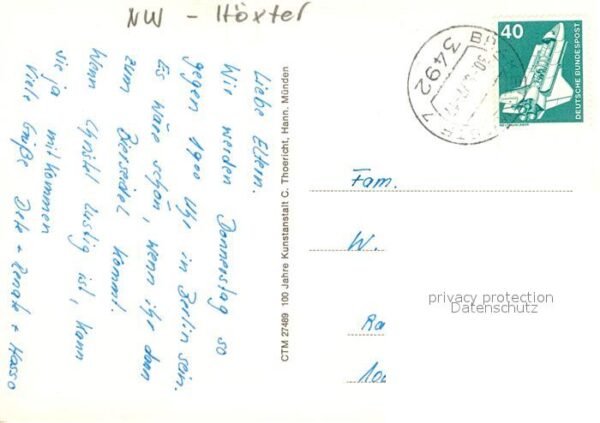 NW - Höxter
Liebe Eltern.
Wir werden Donnerstag so
gegen 19.00 Uhr in Berlin sein.
Es wäre schön, wenn ihr dann
zum Bierseidel kommt.
Wenn Christel lustig ist, kann
sie ja mitkommen
Viele Grüße Dete + Renate + Hasso
CTM 27489 100 Jahre Kunstanstalt C. Thoericht, Hann. Münden
3492
40
DEUTSCHE BUNDESPOST
Fam.
W.
Ra
100
privacy protection
Datenschutz